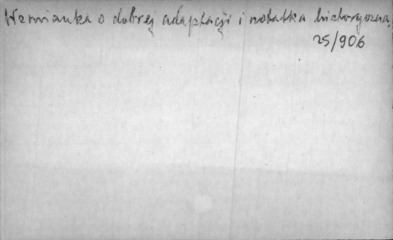 Wzmianka o dobrej adaptacji i notatka historyczna,
25/906